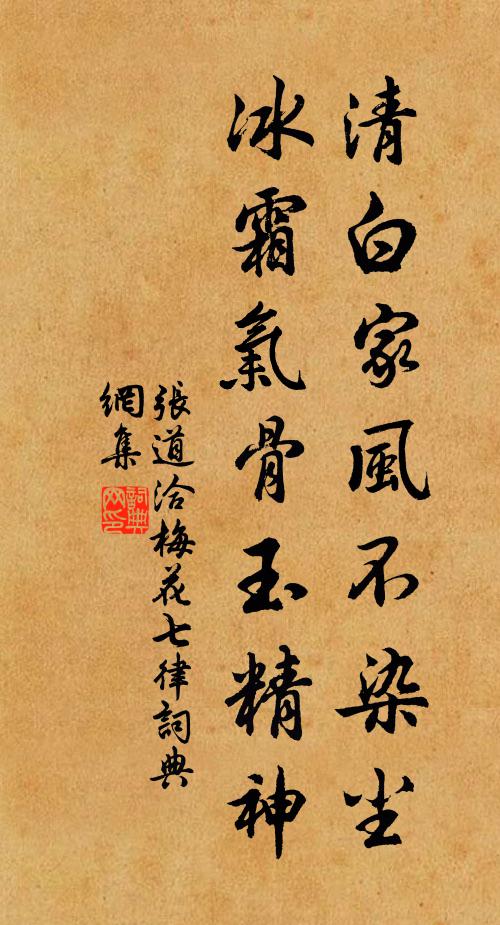 清白家風不染尘
冰霜氣骨玉精神
張道洽梅花七律詞典
網集
詞典
网印